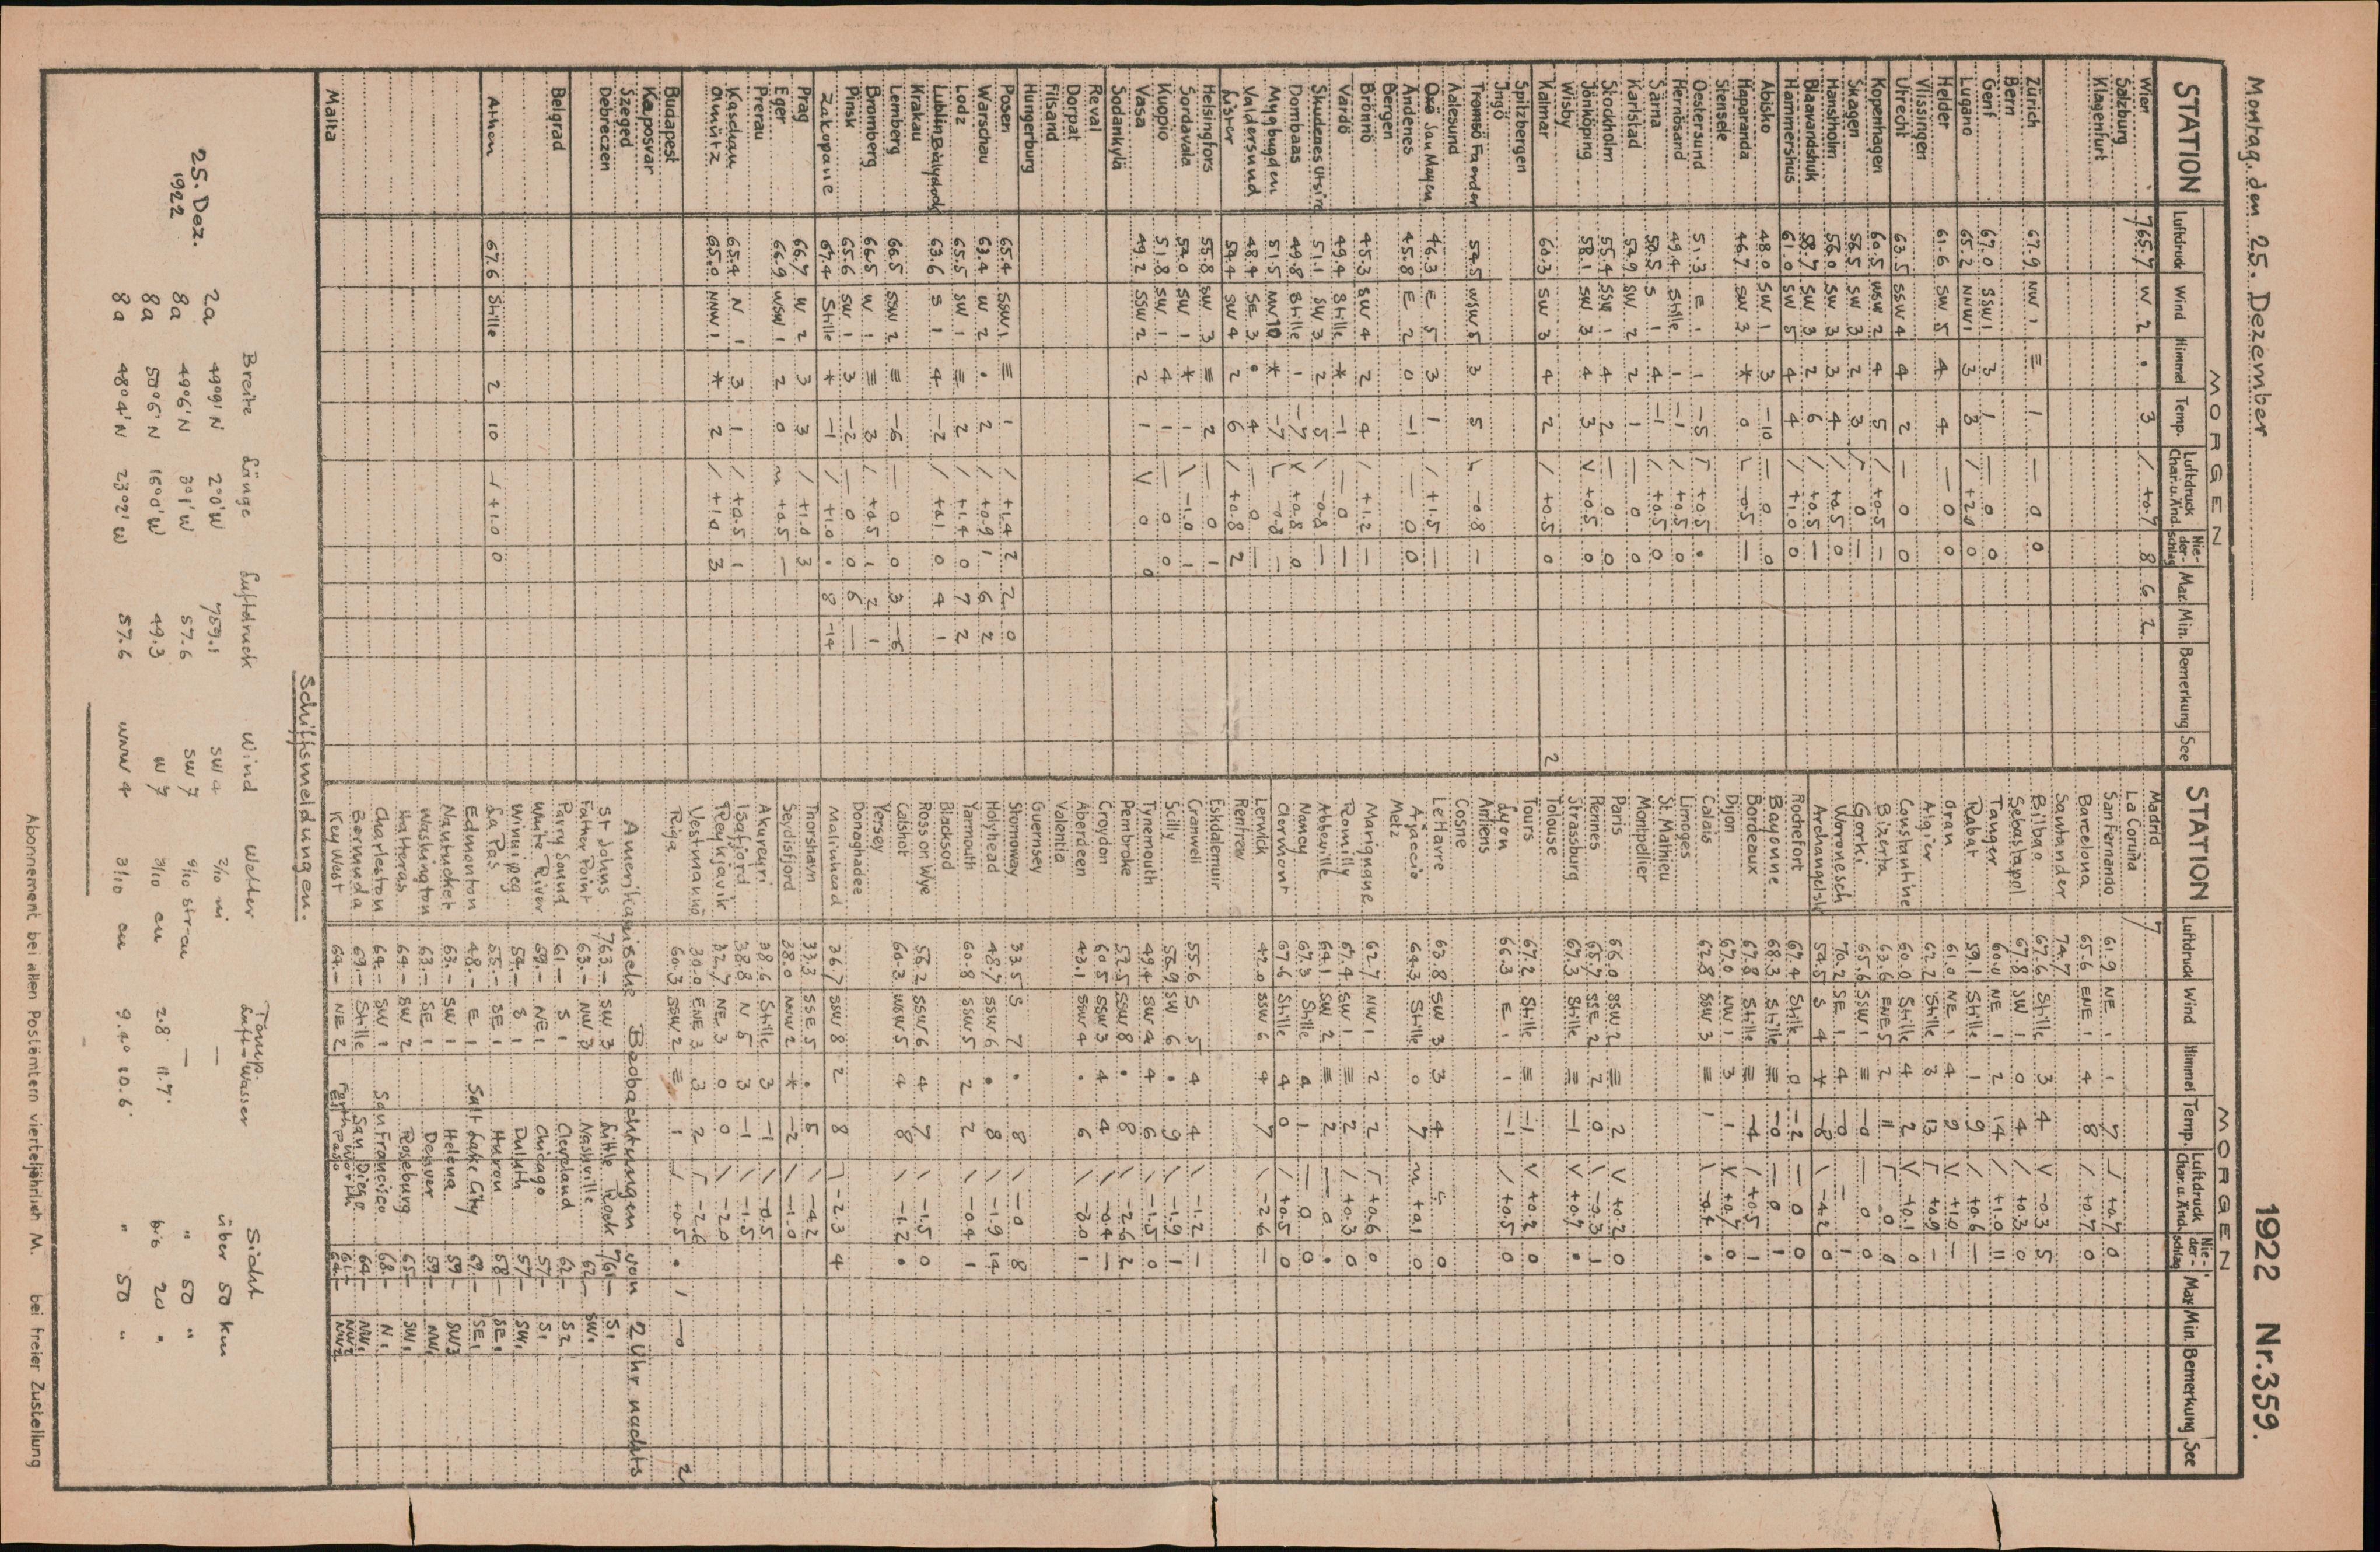 Montag, den 25. Dezember 1922 Nr. 359.
MORGEN
STATION Luftdruck Wind Himmel Temp. Luftdruck Char. u. Änd. Nie-der-schlag Max. Min. Bemerkung See
Wien 765.7 W 2 • 3 / +0.7 8 6 2
Salzburg
Klagenfurt
Zürich 67.9 NW 1 ≡ 1 — 0 0
Bern
Genf 67.0 SSW 1 3 1 — 0 0
Lugano 65.2 NNW 1 3 8 / +2.0 0
Helder 61.6 SW 5 4 4 — 0 0
Vlissingen
Utrecht 63.5 SSW 4 4 2 — 0 0
Kopenhagen 60.5 WSW 2 4 5 / +0.5 —
Skagen 56.5 SW 3 2 3 0 —
Hanstholm 56.0 SW 3 3 4 / +0.5 0
Blaavandshuk 58.7 SW 3 2 6 +0.5 —
Hammershus 61.0 SW 5 4 4 / +1.0 0
Abisko 48.0 SW 1 3 -10 — 0 0
Haparanda 46.7 SW 3 * 0 -0.5 —
Stensele
Oestersund 51.3 E 1 1 -5 +0.5 •
Hernösand 49.4 Stille 1 -1 / +0.5 0
Särna 50.5 S 1 4 -1 / +0.5 0
Karlstad 54.9 SW 2 2 1 — 0 0
Stockholm 55.4 SSW 1 4 2 — 0 0
Jönköping 58.1 SW 3 4 3 V +0.5 0
Wisby
Kalmar 60.3 SW 3 4 2 / +0.5 0 2
Spitzbergen
Ingö
Tromsö Faerder 54.5 WSW 5 3 5 -0.8 —
Aalesund
Oxö Jan Mayen 46.3 E 5 3 1 / +1.5 —
Andenes 45.8 E 2 0 -1 — 0 0
Bergen
Brönnö 45.3 SW 4 2 4 / +1.2 —
Vardö 49.4 Stille * -1 — 0 —
Skudenes Utsire 51.1 SW 3 2 5 \ -0.8 —
Dombaas 49.8 Stille 1 -7 +0.8 0
Myggbugden 51.5 NW 10 * -7 -0.8 —
Valdersund 48.4 SE 3 • 4 — 0 —
Lister 54.4 SW 4 2 6 / +0.8 2
Helsingfors 55.8 SW 3 ≡ 2 — 0 1
Sordavala 54.0 SW 1 * 1 \ -1.0 1
Kuopio 51.8 SW 1 4 1 — 0 0
Vasa 49.2 SSW 2 2 1 V 0 0
Sodankylä
Reval
Dorpat
Filsand
Hungerburg
Posen 65.4 SSW 1 ≡ 1 / +1.4 2 2 0
Warschau 63.4 W 2 • 2 / +0.9 1 6 2
Lodz 65.5 SW 1 ≡ 2 / +1.4 0 7 2
Lublin Bialystok 63.6 S 1 4 -2 / +0.1 0 4 1
Krakau
Lemberg 66.5 SSW 2 ≡ -6 — 0 0 3 -6
Bromberg 66.5 W 1 ≡ 3 / +0.5 1 2 1
Pinsk 65.6 SW 1 3 -2 — 0 0 6 —
Zakopane 67.4 Stille * -1 / +1.0 • 8 -14
Prag 66.7 W 2 3 3 / +1.0 3
Eger 66.9 WSW 1 2 0 +0.5 —
Prerau
Kaschau 65.4 N 1 3 1 / +0.5 1
Olmütz 65.0 NNW 1 * 2 / +1.0 3
Budapest
Kaposvar
Szeged
Debreczen
Belgrad
Athen 67.6 Stille 2 10 +1.0 0
Malta
MORGEN
STATION Luftdruck Wind Himmel Temp. Luftdruck Char. u. Änd. Nie-der-schlag Max. Min. Bemerkung See
Madrid 7
La Coruña
San Fernando 61.9 NE 1 1 7 +0.7 0
Barcelona 65.6 ENE 1 4 8 / +0.7 0
Santander 74.7
Bilbao 67.6 Stille 3 4 V -0.3 5
Sebastopol 67.8 SW 1 0 4 / +0.3 0
Tanger 60.0 NE 1 2 14 / +1.0 11
Rabat 59.1 Stille 1 9 / +0.6 —
Oran 61.0 NE 1 4 9 V +1.0 —
Algier 62.2 Stille 3 13 +0.9 —
Constantine 60.0 Stille 4 2 V +0.1 0
Bizerta 63.6 ENE 5 2 11 0 0
Gorki 65.6 SW 1 ≡ -0 — 0 0
Woronesch 70.2 SE 1 4 -0 — 1
Archangelsk 54.5 S 4 * -8 \ -4.2 0
Rochefort 67.4 Stille 0 -2 — 0 0
Bayonne 68.3 Stille ≡ -0 — 0 1
Bordeaux 67.8 Stille ≡ -4 / +0.5 1
Dijon 67.0 NW 1 3 1 V +0.7 0
Calais 62.8 SSW 3 ≡ 1 \ -0.4 •
Limoges
St. Mathieu
Montpellier
Paris 66.0 SSW 2 ≡ 2 V +0.2 0
Rennes 65.7 SSE 2 2 0 \ -0.3 1
Strassburg 67.3 Stille ≡ -1 V +0.7 •
Tolouse
Tours 67.2 Stille ≡ -1 V +0.2 0
Lyon 66.3 E 1 1 -1 / +0.5 0
Amiens
Cosne
Le Havre 63.8 SW 3 3 4 0
Ajaccio 64.3 Stille 0 7 +0.1 0
Metz
Marignane 62.7 NW 1 2 2 +0.6 0
Romilly 67.4 SW 1 ≡ 2 / +0.3 0
Abbeville 64.1 SW 2 ≡ 2 — 0 •
Nancy 67.3 Stille 4 1 — 0 0
Clermont 67.6 Stille 4 0 / +0.5 0
Lerwick 42.0 SSW 6 4 7 \ -2.6 —
Renfrew
Eskdalemuir
Cranwell 55.6 S 5 4 4 \ -1.2 —
Scilly 56.9 SW 6 • 9 \ -1.9 1
Tynemouth 49.4 SW 4 4 6 \ -1.5 0
Pembroke 52.5 SSW 8 • 8 \ -2.6 2
Croydon 60.5 SSW 3 4 4 \ -0.4 —
Aberdeen 43.1 SSW 4 • 6 \ -3.0 1
Valentia
Guernsey
Stornoway 33.5 S 7 • 8 \ -0 8
Holyhead 48.7 SSW 6 • 8 \ -1.9 14
Yarmouth 60.8 SSW 5 2 2 \ -0.4 1
Blacksod
Ross on Wye 56.2 SSW 6 4 7 \ -1.5 0
Calshot 60.3 WSW 5 4 8 \ -1.2 •
Yersey
Donaghadee
Malinhead 36.7 SSW 8 2 8 -2.3 4
Thorshavn 33.3 SSE 5 • 5 \ -4.2
Seydisfjord 38.0 NNW 2 * -2 \ -1.0
Akureyri 38.6 Stille 3 -1 \ -0.5
Isafjord 38.8 N 5 3 -1 \ -1.5
Reykjavik 32.7 NE 3 0 0 \ -2.0
Vestmanno 30.0 ENE 3 3 2 -2.6
Riga 60.3 SSW 2 ≡ 1 / +0.5 • 1 -0 2
Amerikanische Beobachtungen von 2 Uhr nachts
St Johns 763.- SW 3 Little Rock 761.- S 1
Father Point 63.- NW 3 Nashville 62.- SW 1
Parry Sound 61.- S 1 Cleveland 62.- S 2
White River 59.- NE 1 Chicago 57.- S 1
Winnipeg 54.- S 1 Duluth 57.- SW 1
La Pas 55.- SE 1 Huron 58.- SE 1
Edmonton 48.- E 1 Salt Lake City 69.- SE 1
Nantucket 63.- SW 1 Helena 59.- SW 3
Washington 63.- SE 1 Denver 59.- NW 1
Hatteras 64.- SW 2 Roseburg 65.- SW 1
Charleston 64.- SW 1 San Francisco 68.- N 1
Bermuda 69.- Stille San Diego 64.- NW 1
Key West 64.- NE 2 Forth Worth 61.- NW 2
El Paso 64.- NW 2
Schiffsmeldungen.
Breite Länge Luftdruck Wind Wetter Temp. Luft - Wasser Sicht
2a 49°9' N 2°0' W 759.1 SW 4 2/10 ni — über 50 km
25. Dez. 1922 8a 49°6' N 3°1' W 57.6 SW 7 9/10 strcu — " 50 "
8a 50°6' N 16°0' W 49.3 W 7 3/10 cu 2.8° 11.7° bis 20 "
8a 48°4' N 23°2' W 57.6 WNW 4 3/10 cu 9.4° 10.6° " 50 "
Abonnement bei allen Postämtern vierteljährlich M. bei freier Zustellung